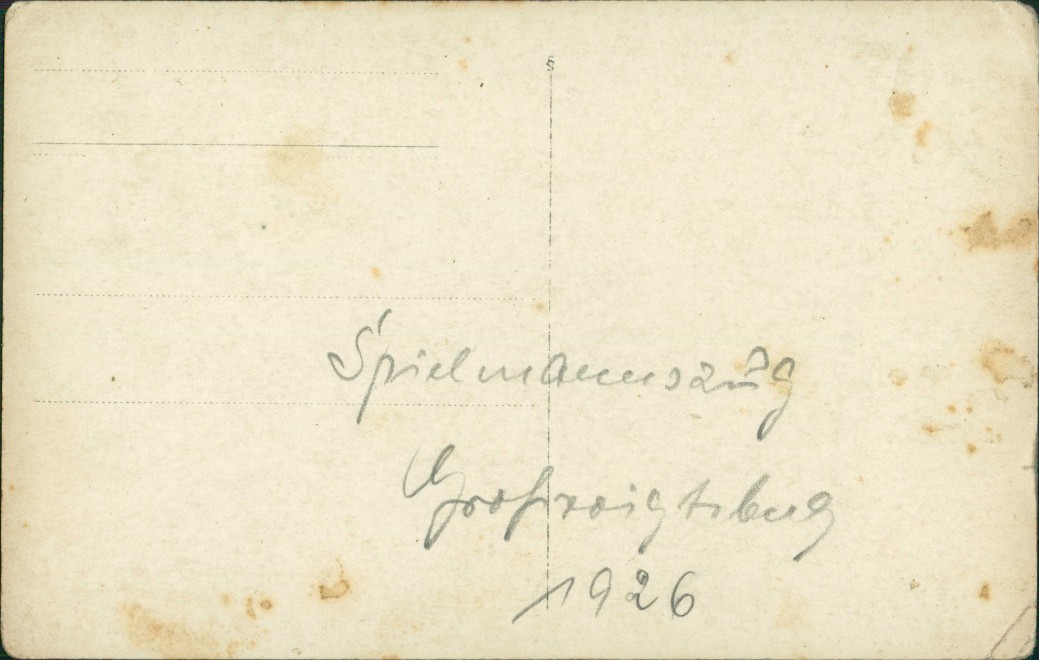 §
Spielmannszug
Großvoigtsberg
1926